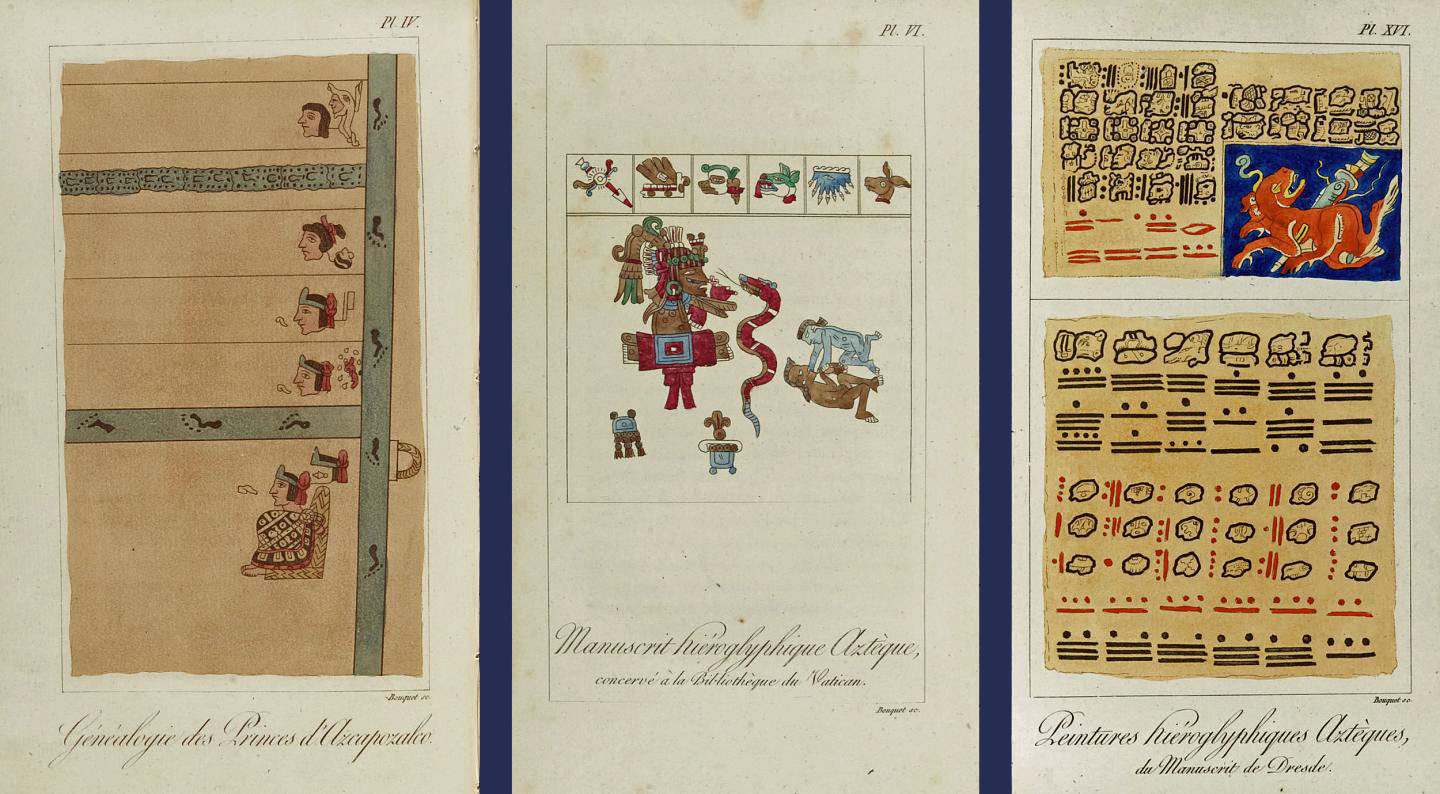 Pl. IV.
Bouquet sc.
Généalogie des Princes d'Azcapozalco.
Pl. VI.
Manuscrit hiéroglyphique Aztèque,
concervé à la Bibliothèque du Vatican.
Bouquet sc.
Pl. XVI.
Bouquet sc.
Peintures hiéroglyphiques Aztèques,
du Manuscrit de Dresde.